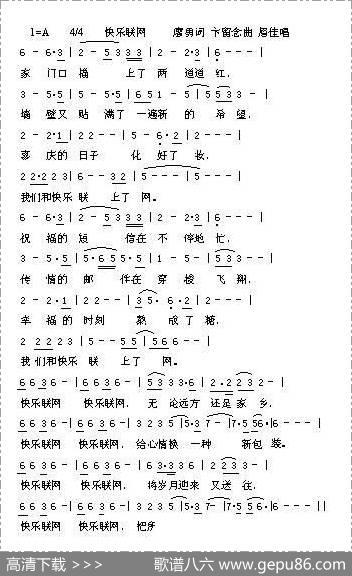 1=A 4/4 快乐联网 廖勇词 卞留念曲 眉佳唱
6 - 6·3 | 2 - 5 3 3 3 | 2 - 2·3 | 6 - - - |
家 门口 福 上了 两 道道 红,
3 - 5·5 | 5 - 5 - 5 | 6 5 1 - 5 | 5 5 3 3 - |
墙 壁又 贴 满了 一遍新 的 希 望,
2 - 2·1 | 2 2 - - | 5 - 6·2 | 2 - - - |
喜 庆的 日子 化 好了 妆,
2 2·2 2 3 | 6 - - 3 2 | 5 - - - | 5 - - - |
我们和快乐 联 上了 网。
6 - 6·3 | 2 - 5 3 3 3 | 2 - 2·3 | 6 - - - |
祝 福的 短 信在 不 停地 忙,
3 - 5·5 | 5·6 5 5·5 | 1 - 5 - | 5 3 3 - - |
传 情的 邮 件在 穿 梭 飞 翔,
2 - 2·1 | 2 2 - - | 3 5· 6·2 | 2 - - - |
幸 福的 时刻 熟 成了 糖,
2 2 2 2 3 | 5 - - 5 5 | 5 6 6 - - |
我 们和快乐 联 上了 网。
6 6 3 6 - | 6 6 3 6 - | 5 3 3 3·6 | 2·2 2 3 2 - |
快乐联网 快乐联网, 无 论远方 还是家 乡,
6 6 3 6 - | 6 6 3 6 - | 3 2 3 5 | 5·3 7 - | 7·5 5 6·| 6 - - - |
快乐联网 快乐联网, 给心情换 一种 新包 装。
6 6 3 6 - | 6 6 3 6 - | 6 3·3 3 6 | 2 2 3 3 - |
快乐联网 快乐联网, 将岁月迎来 又送 往,
6 6 3 6 - | 6 6 3 6 - | 3 2 3 5 | 5·3 7 - | 7·5 5 6 - | 6 - - - ||
快乐联网 快乐联网, 把所
高清下载 >>> 歌谱八六 www.gepu86.com